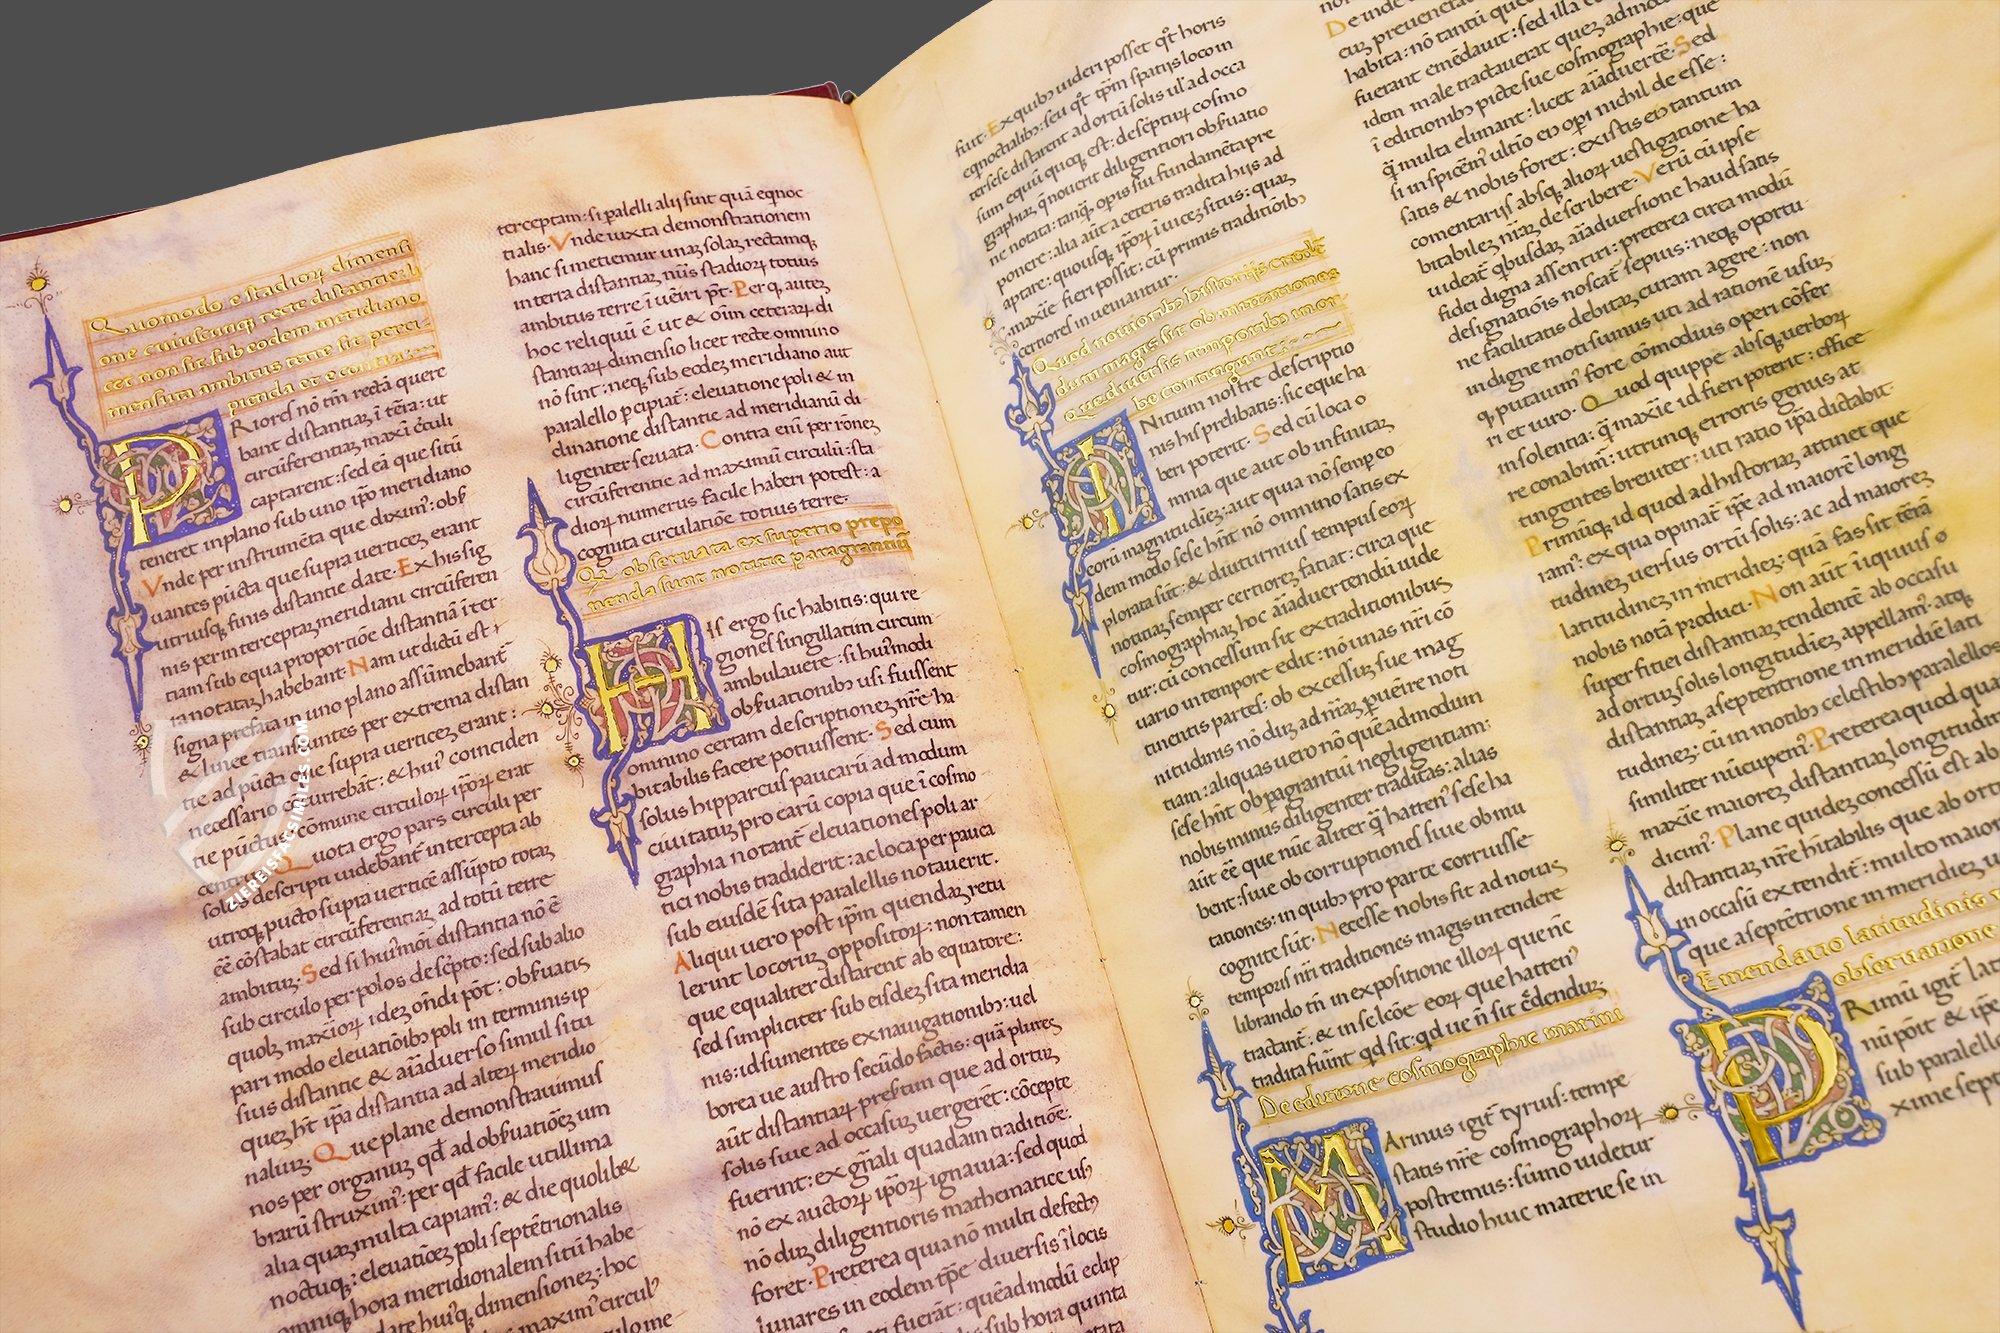 Quomodo e stadiorꝝ dimensi
one cuiuscunqꝫ recte distantie: li
cet non sit sub eodem meridiano
mensura ambitus terre sit perci
pienda et e contra
PRiores nō tm̄ rectā quere
bant distantiaꝫ ī tērra: ut
circūferentiaꝫ maxī c̄culi
captarent: sed eā que sitū
teneret in plano sub uno ip̄o meridiano
Vnde per instrumēta que dixim᷒: obs̄
uantes pūcta que supra uerticeꝫ erant
utriusqꝫ finis distantie date. Ex his sig
nis per interceptaꝫ meridiani circūferen
tiam sub equa proportiōe distantiā iter
notataꝫ habebant. Nam ut dictū est:
signa prefata in uno plano assūmebant᷒
& linee transeuntes per extrema distan
tie ad pūcta que supra uerticeꝫ erant:
necessario cōcurrebāt: & hui᷒ coinciden
tie pūctus cōmune circulorꝝ ip̄orꝝ erat
centrū. Quota ergo pars circuli per
polos descripti uidebant᷒ intercepta ab
utroqꝫ pūcto supra uerticē assūpto totaꝫ
eē cōstabat circūferentiaꝫ ad totū terre
ambituꝫ. Sed si hui᷒mōi distantia nō ē
sub circulo per polos descp̄to: sed sub alio
quolꝫ maxīorꝝ ideꝫ oñdi pōt: obs̄uatis
pari modo eleuatiōibꝫ poli in terminis ip
sius distantie & aīaduerso simul situ
queꝫ h̄t ip̄a distantia ad alterꝝ meridio
naluꝫ. Que plane demonstrauimus
nos per organuꝫ qd̄ ad obs̄uatiōeꝫ um
brarū struxim᷒: per qd̄ facile utillima
alia quaꝫ multa capiam᷒: & die quolibꝫ
noctuqꝫ: eleuatiōeꝫ poli septētrionalis
omniqꝫ hora meridionalem sitū habe
hui᷒qꝫ dimensioneꝫ: hoc
maxim᷒ circul᷒
terceptam: si palelli alij sint quā eqnoc
tialis. Vnde iuxta demonstrationem
hanc si metiemur unaꝫ solaꝫ rectamqꝫ
in terra distantiaꝫ nūs stadiorꝝ totius
ambitus terre īueīri pōt. Per q autez
hoc reliquū ē ut & oīm ceterarꝝ di
stantiarꝝ dimensio licet recte omnino
nō sint: neqꝫ sub eodeꝫ meridiano aut
parallelo p̄cipiat᷒: eleuatione poli & in
clinatione distantie ad meridianū di
ligenter seruata. Contra enī per rōneꝫ
circūferentie ad maximū circulū: sta
diorꝝ numerus facile haberi potest: a
cognita circulatiōe totius terre.
Qꝫ obseruata ex superio prepo
nenda sunt notitie paragrantiū
HIs ergo sic habitis: qui re
giones singillatim circum
ambulauere: si hui᷒modi
obs̄uationibꝫ usi fuissent
omnino certam descriptioneꝫ nr̄e ha
bitabilis facere potuissent. Sed cum
solus hipparcus paucarū ad modum
ciuitatuꝫ pro earū copia que ī cosmo
graphia notant᷒ eleuationes poli ar
tici nobis tradiderit: ac loca per pauca
sub eiusdē sita paralellis notauerit.
Aliqui uero post ip̄m quendaꝫ retu
lerint locoruꝫ oppositorꝝ: non tamen
que equaliter distarent ab equatore:
sed simpliciter sub eisdeꝫ sita meridia
nis: id sumentes ex nauigationibꝫ: uel
borea ue austro secūdo factis: quā plures
aūt distantiarꝝ presertim que ad ortuꝫ
solis siue ad occasuꝫ uergerēt: cōcepte
fuerint: ex gn̄ali quadam traditiōe:
nō ex auctorꝝ ip̄orꝝ ignauia: sed quod
nō duꝫ diligentioris mathematice us᷒
foret. Preterea quia nō multi defectꝰ
lunares in eodem tp̄e diuersis ī locis
fuerāt: quēad modū eclip
sub hora quinta
fiūt. Ex quibꝫ uideri posset qt̄ horis
eqnoctialibꝫ: seu qt̄ tp̄m spatijs loco in
ter sese distarent ad ortū solis ul᷒ ad occa
sum equū quoqꝫ est: descp̄turꝝ cosmo
graphiaꝫ q̄ nouerit diligentiori obs̄uatio
ne notata: tanqꝫ operis sui fundamēta pre
ponere: alia aūt a ceteris tradita hijs ad
aptare: quousqꝫ ip̄orꝝ īuiceꝫ situs: quaꝫ
maxīe fieri possit: cū primis traditiōibꝫ
certiores inueniantur.
Quod nouioribꝫ historijs crede
dum magis sit ob mutationes
que diuersis temporibꝫ in or
be contingunt
INitium nostre descriptio
nis his prelibatis: sic eque ha
beri poterit. Sed cū loca o
mnia que aut ob infinitaꝫ
eorū magnitudieꝫ: aut qua nō semp eo
dem modo sese hn̄t nō omnino satis ex
plorata sūt: & diuturnius tempus eorꝝ
notitiaꝫ semper certiores faciat: circa que
cosmographiaꝫ hoc aīaduertendū uide
tur: cū concessum sit ex traditionibus
uario in tempore edit᷒: nō unas nr̄i cō
tinentis partes: ob excessiuꝫ sue mag
nitudinis nō duꝫ ad nr̄aꝫ p̄ueīre noti
tiam: aliquas uero nō quēadmodum
sese hn̄t ob p̄agrantiū negligentiam:
nobis minus diligenter traditas: alias
aūt eē que nūc aliter q̄ hacten᷒ sese ha
bent: siue ob corruptiones siue ob mu
tationes: in quibꝫ pro parte corruisse
cognite sūt. Necesse nobis sit ad nouas
temporis nr̄i traditiones magis intendere
librando tn̄ in expositione illorꝝ que nc̄
tractant᷒: & in selcōe eorꝝ que hacten᷒
tradita fuīnt qd sit: qd ue n̄ sit cr̄edenduꝫ.
De editione cosmographie marini
MArinus igit᷒ tyrius: tempe
statis nr̄e cosmographorꝝ
postremus: sūmo uidetur
studio huic materie se in
Deinde
euꝫ preuenerat
habita: nō tantū que
fuerant emēdauit: sed illa
idem male tractauerat queꝫ admodū
ī editionibꝫ pictē sue cosmographie: que
q̄ multa elimant: licet aīaduertē. Sed
si inspicēm᷒ ultio eius operi nichil deesse:
satis & nobis foret: existis eius tantum
comentarijs absqꝫ aliorꝝ uestigatione ha
bitabileꝫ nr̄aꝫ describere. Verū cū ipse
uideat᷒ qbusdaꝫ aīaduersione haud satis
fidei digna assentiri: preterea circa modū
designatiōis noscat᷒ sepius: neqꝫ oportu
ne facilitatis debitaꝫ curam agere: non
indigne moti sumus uti ad rationē usuꝫ
qꝫ putauim᷒ fore cōmodius operi cōfer
ri et uiro. Quod quippe absqꝫ uerborꝝ
insolentia: q̄ maxīe id fieri poterit: effice
re conabim᷒: utrunqꝫ erroris genus at
tingentes breuiter: uti ratio ip̄a dictabit.
Primūqꝫ id quod ad historiaꝫ attinet que
ram᷒: ex qua opinat᷒ ip̄e ad maiorē longi
tudineꝫ uersus ortū solis: ac ad maioreꝫ
latitudineꝫ in meridieꝫ: quā fas sit tērā
nobis notā produci. Non aūt īiquius o
superfitiei distantiaꝫ tendentē ab occasu
ad ortuꝫ solis longitudieꝫ appellam᷒: atqꝫ
distantiaꝫ a septentrione in meridiē lati
tudineꝫ: cū in motibꝫ celestibꝫ paralellos
similiter nūcupem᷒. Preterea quod qua
maxīe maioreꝫ distantiaꝫ longitudinē
dicim᷒. Plane quideꝫ concessū est ab
distantiaꝫ nr̄e hitabilis que ab ortu
in occasū extendit᷒: multo maiorē
que a septētrione in meridieꝫ
Emendatio latitudinis
obseruatione
PRimū igit᷒ lat
nū pōit & ip̄e
sub paralello
xime sept
ZIEREISFACSIMILES.COM